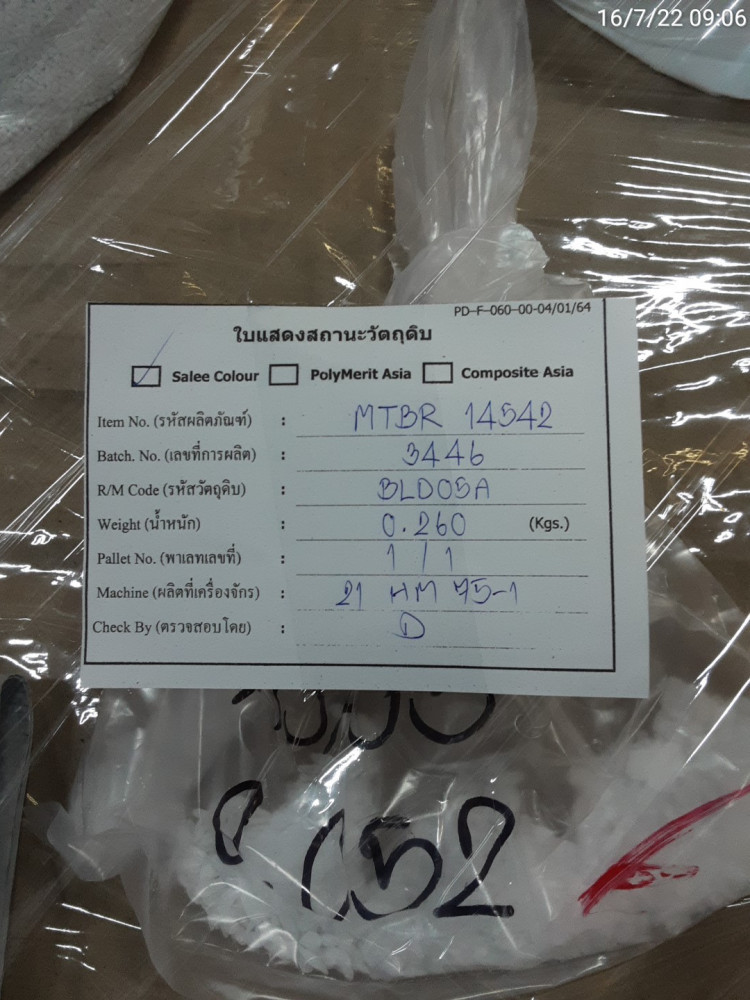 16/7/22 09:06
PD-F-060-00-04/01/64
ใบแสดงสถานะวัตถุดิบ
Salee Colour PolyMerit Asia Composite Asia
Item No. (รหัสผลิตภัณฑ์) : MTBR 14542
Batch. No. (เลขที่การผลิต) : 3446
R/M Code (รหัสวัตถุดิบ) : BLD05A
Weight (น้ำหนัก) : 0.260 (Kgs.)
Pallet No. (พาเลทเลขที่) : 1 / 1
Machine (ผลิตที่เครื่องจักร) : 21 HM 75-1
Check By (ตรวจสอบโดย) : D